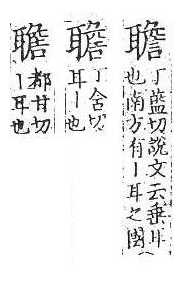 聸
丁藍切說文云垂耳
也南方有丨耳之國
聸
丁舍切
耳丨也
聸
都甘切
丨耳也